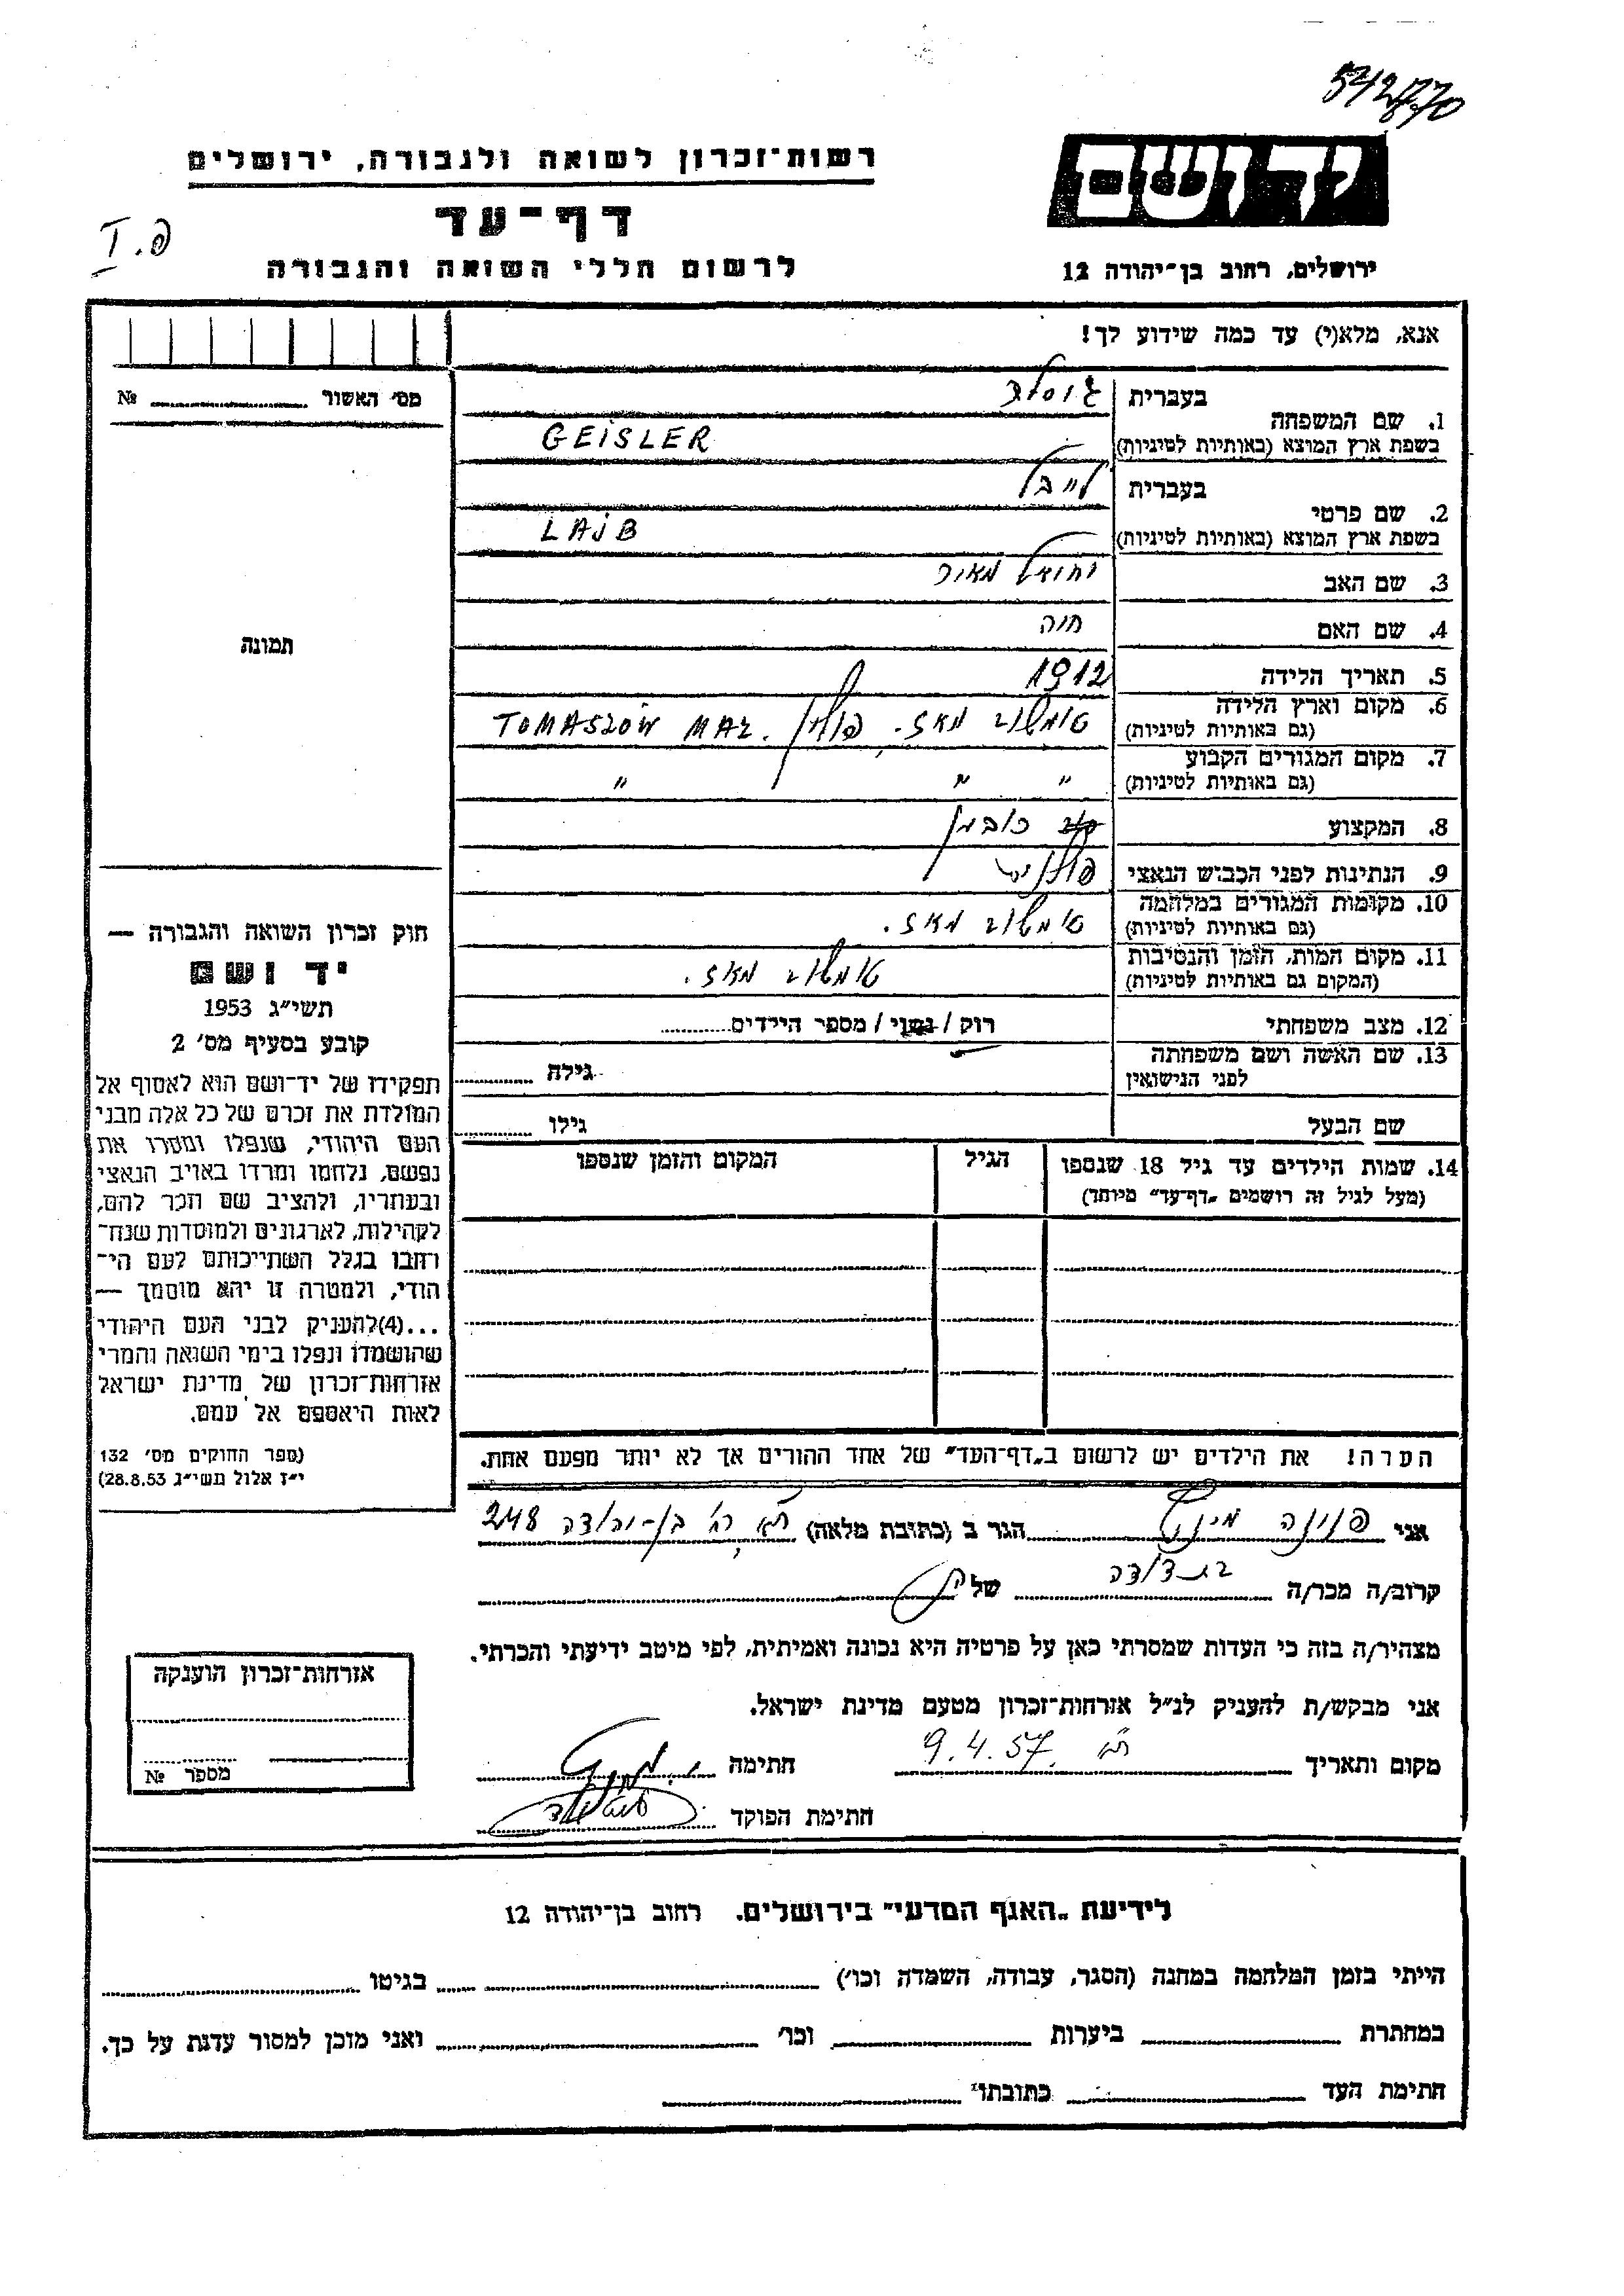 542/770
רשות-זכרון לשואה ולגבורה, ירושלים
יד ושם
דף-עד
פ. I
לרשום חללי השואה והגבורה
ירושלים, רחוב בן-יהודה 12
אנא, מלא(י) עד כמה שידוע לך!
מס׳ האשור № ........
1. שם המשפחה
בעברית גיסלר
בשפת ארץ המוצא (באותיות לטיניות) GEISLER
2. שם פרטי
בעברית לייבל
בשפת ארץ המוצא (באותיות לטיניות) LAJB
3. שם האב יחזאל מאיר
4. שם האם חוה
5. תאריך הלידה 1912
6. מקום וארץ הלידה (גם באותיות לטיניות) טומשוב מאז. פולין. TOMASZÓW MAZ.
7. מקום המגורים הקבוע (גם באותיות לטיניות) " " "
8. המקצוע כובען
9. הנתינות לפני הכבוש הנאצי פולנית
10. מקומות המגורים במלחמה (גם באותיות לטיניות) טומשוב מאז.
11. מקום המות, הזמן והנסיבות (המקום גם באותיות לטיניות) טומשוב מאז.
12. מצב משפחתי רוק / נשוי / מספר הילדים........
13. שם האשה ושם משפחתה לפני הנישואין גילה ........
שם הבעל גילו ........
14. שמות הילדים עד גיל 18 שנספו
(מעל לגיל זה רושמים „דף-עד" מיוחד)
הגיל
המקום והזמן שנספו
הערה! את הילדים יש לרשום ב„דף-העד" של אחד ההורים אך לא יותר מפעם אחת.
תמונה
חוק זכרון השואה והגבורה —
יד ושם
תשי״ג 1953
קובע בסעיף מס׳ 2
תפקידו של יד-ושם הוא לאסוף אל
המולדת את זכרם של כל אלה מבני
העם היהודי, שנפלו ומסרו את
נפשם, נלחמו ומרדו באויב הנאצי
ובעוזריו, ולהציב שם וזכר להם,
לקהילות, לארגונים ולמוסדות שנח-
רבו בגלל השתייכותם לעם הי-
הודי, ולמטרה זו יהא מוסמך —
...(4)להעניק לבני העם היהודי
שהושמדו ונפלו בימי השואה והמרי
אזרחות-זכרון של מדינת ישראל
לאות היאספם אל עמם.
(ספר החוקים מס׳ 132
י״ז אלול תשי״ג 28.8.53)
אני פנינה מינץ הגר ב (כתובת מלאה) ת״א רח׳ בן-יהודה 248
קרוב/ה מכר/ה בת דודה של
מצהיר/ה בזה כי העדות שמסרתי כאן על פרטיה היא נכונה ואמיתית, לפי מיטב ידיעתי והכרתי.
אני מבקש/ת להעניק לנ״ל אזרחות-זכרון מטעם מדינת ישראל.
מקום ותאריך ת״א 9.4.57 חתימה
חתימת הפוקד
אזרחות-זכרון הוענקה
מספר №
לידיעת „האגף המדעי" בירושלים. רחוב בן-יהודה 12
הייתי בזמן המלחמה במחנה (הסגר, עבודה, השמדה וכו׳) ........ בגיטו ........
במחתרת ........ ביערות ........ וכו׳ ........ ואני מוכן למסור עדות על כך.
חתימת העד ........ כתובתו ........